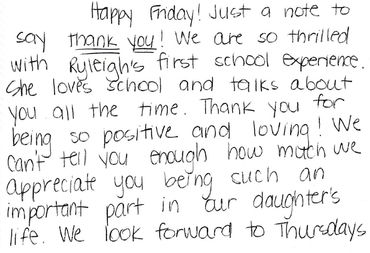 Happy Friday! Just a note to
say thank you! We are so thrilled
with Ryleigh's first school experience.
She loves school and talks about
you all the time. Thank you for
being so positive and loving! We
can't tell you enough how much we
appreciate you being such an
important part in our daughter's
life. We look forward to Thursdays